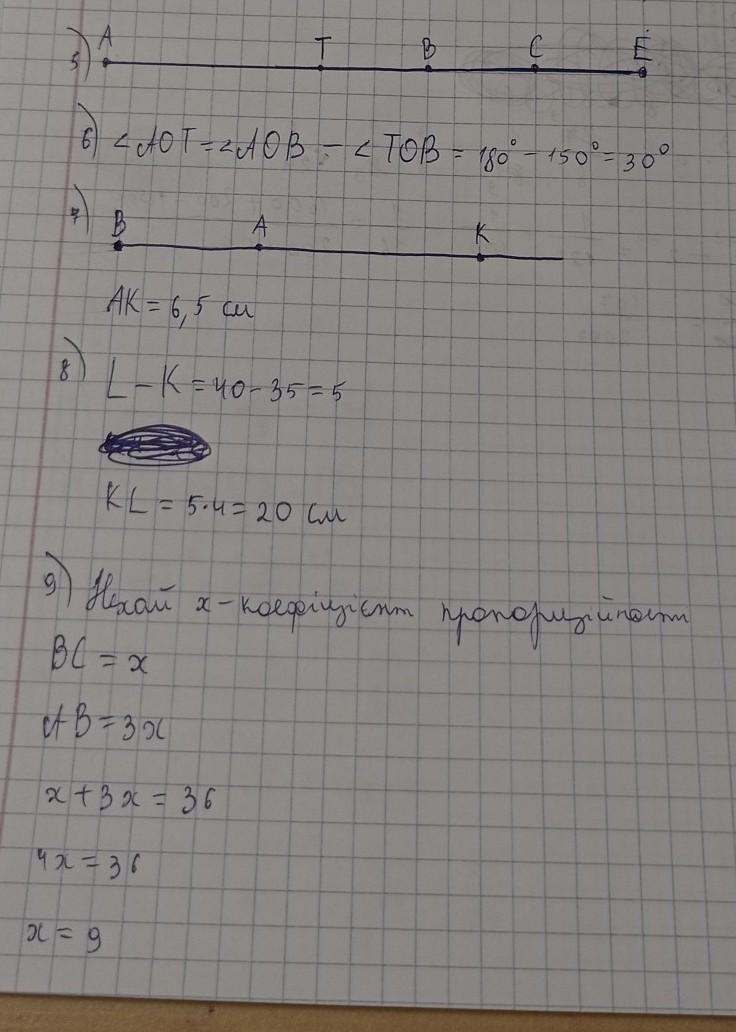 5) A T B C E
6) ∠AOT=∠AOB - ∠TOB = 180° - 150° = 30°
7) B A K
AK = 6,5 см
8) L - K = 40 - 35 = 5
KL = 5·4 = 20 см
9) Нехай x - коефіцієнт пропорційност
BC = x
AB = 3x
x + 3x = 36
4x = 36
x = 9